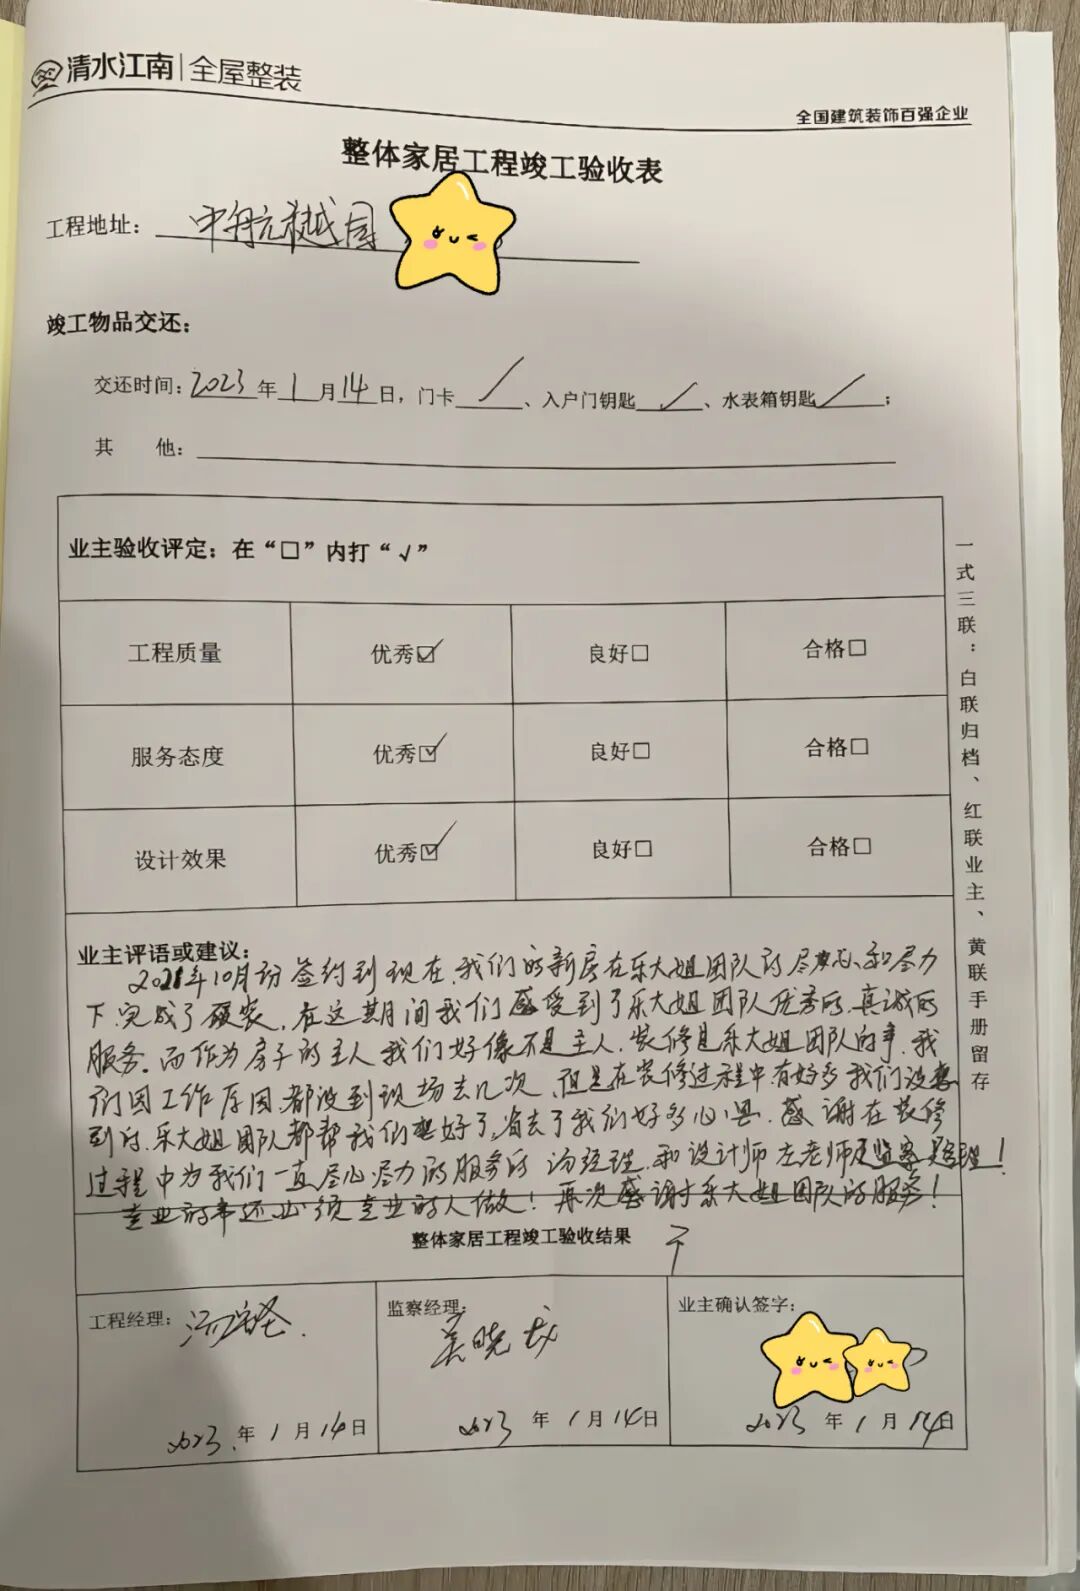 清水江南|全屋整装
全国建筑装饰百强企业
整体家居工程竣工验收表
工程地址： 中航樾园
竣工物品交还：
交还时间：2023年1月14日，门卡/、入户门钥匙/、水表箱钥匙/；
其 他：
业主验收评定：在“□”内打“√”
工程质量 优秀☑ 良好□ 合格□
服务态度 优秀☑ 良好□ 合格□
设计效果 优秀☑ 良好□ 合格□
一式三联：白联归档、红联业主、黄联手册留存
业主评语或建议：
2021年10月份签约到现在，我们的新房在乐大姐团队的尽心和尽力
下，完成了硬装，在这期间我们感受到了乐大姐团队优秀的，真诚的
服务。而作为房子的主人我们好像不是主人，装修是乐大姐团队的事，我
们因工作原因，都没到现场去几次，但是在装修过程中，有好多我们没想
到的，乐大姐团队都帮我们想好了，省去了我们好多心思，感谢在装修
过程中为我们一直尽心尽力的服务的汤经理，和设计师左老师及监察吴经理！
专业的事还必须专业的人做！再次感谢乐大姐团队的服务！
整体家居工程竣工验收结果
工程经理：
监察经理：吴晓
业主确认签字：
2023年1月14日
2023年1月14日
2023年1月14日